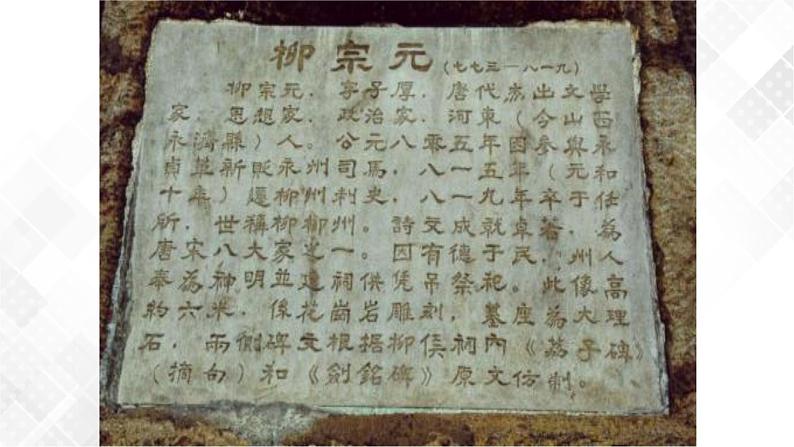 柳宗元(七七三—八一九)
柳宗元,字子厚,唐代杰出文學
家、思想家、政治家,河東(今山西
永濟縣)人。公元八零五年因參與永
貞革新貶永州司馬,八一五年(元和
十年)遷柳州刺史,八一九年卒于任
所,世稱柳柳州。詩文成就卓著,為
唐宋八大家之一。因有德于民,州人
奉為神明並建祠供凭吊祭祀。此像高
約六米,係花崗岩雕刻,墓座為大理
石,兩側碑文根据柳侯祠內《荔子碑》
(摘句)和《劍銘碑》原文仿制。